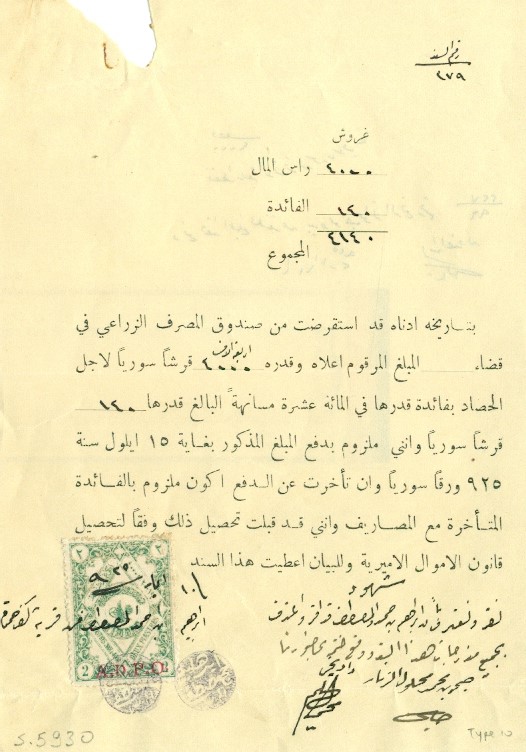 رقم السند
٢٧٩
غروش
٤٠٠٠ راس المال
١٤٠ الفائدة
٤١٤٠ المجموع
بتاريخه ادناه قد استقرضت من صندوق المصرف الزراعي في
قضاء المبلغ المرقوم اعلاه وقدره ٤٠٠٠ اربعة الاف قرشاً سورياً لاجل
الحصاد بفائدة قدرها في المائة عشرة مسانهةً البالغ قدرها ١٤٠
قرشاً سورياً وانني ملزوم بدفع المبلغ المذكور بغاية ١٥ ايلول سنة
٩٢٥ ورقاً سورياً وان تأخرت عن الدفع اكون ملزوم بالفائدة
المتأخرة مع المصاريف وانني قد قبلت تحصيل ذلك وفقاً لتحصيل
قانون الاموال الاميرية وللبيان اعطيت هذا السند
ايار ٩٢٥
شهود
ابراهيم ابن حمد المصطفى من قرية
نقر ونعترف بان ابراهيم بن حمد المصطفى
2
A.D.P.O.
S.5930
Type 10